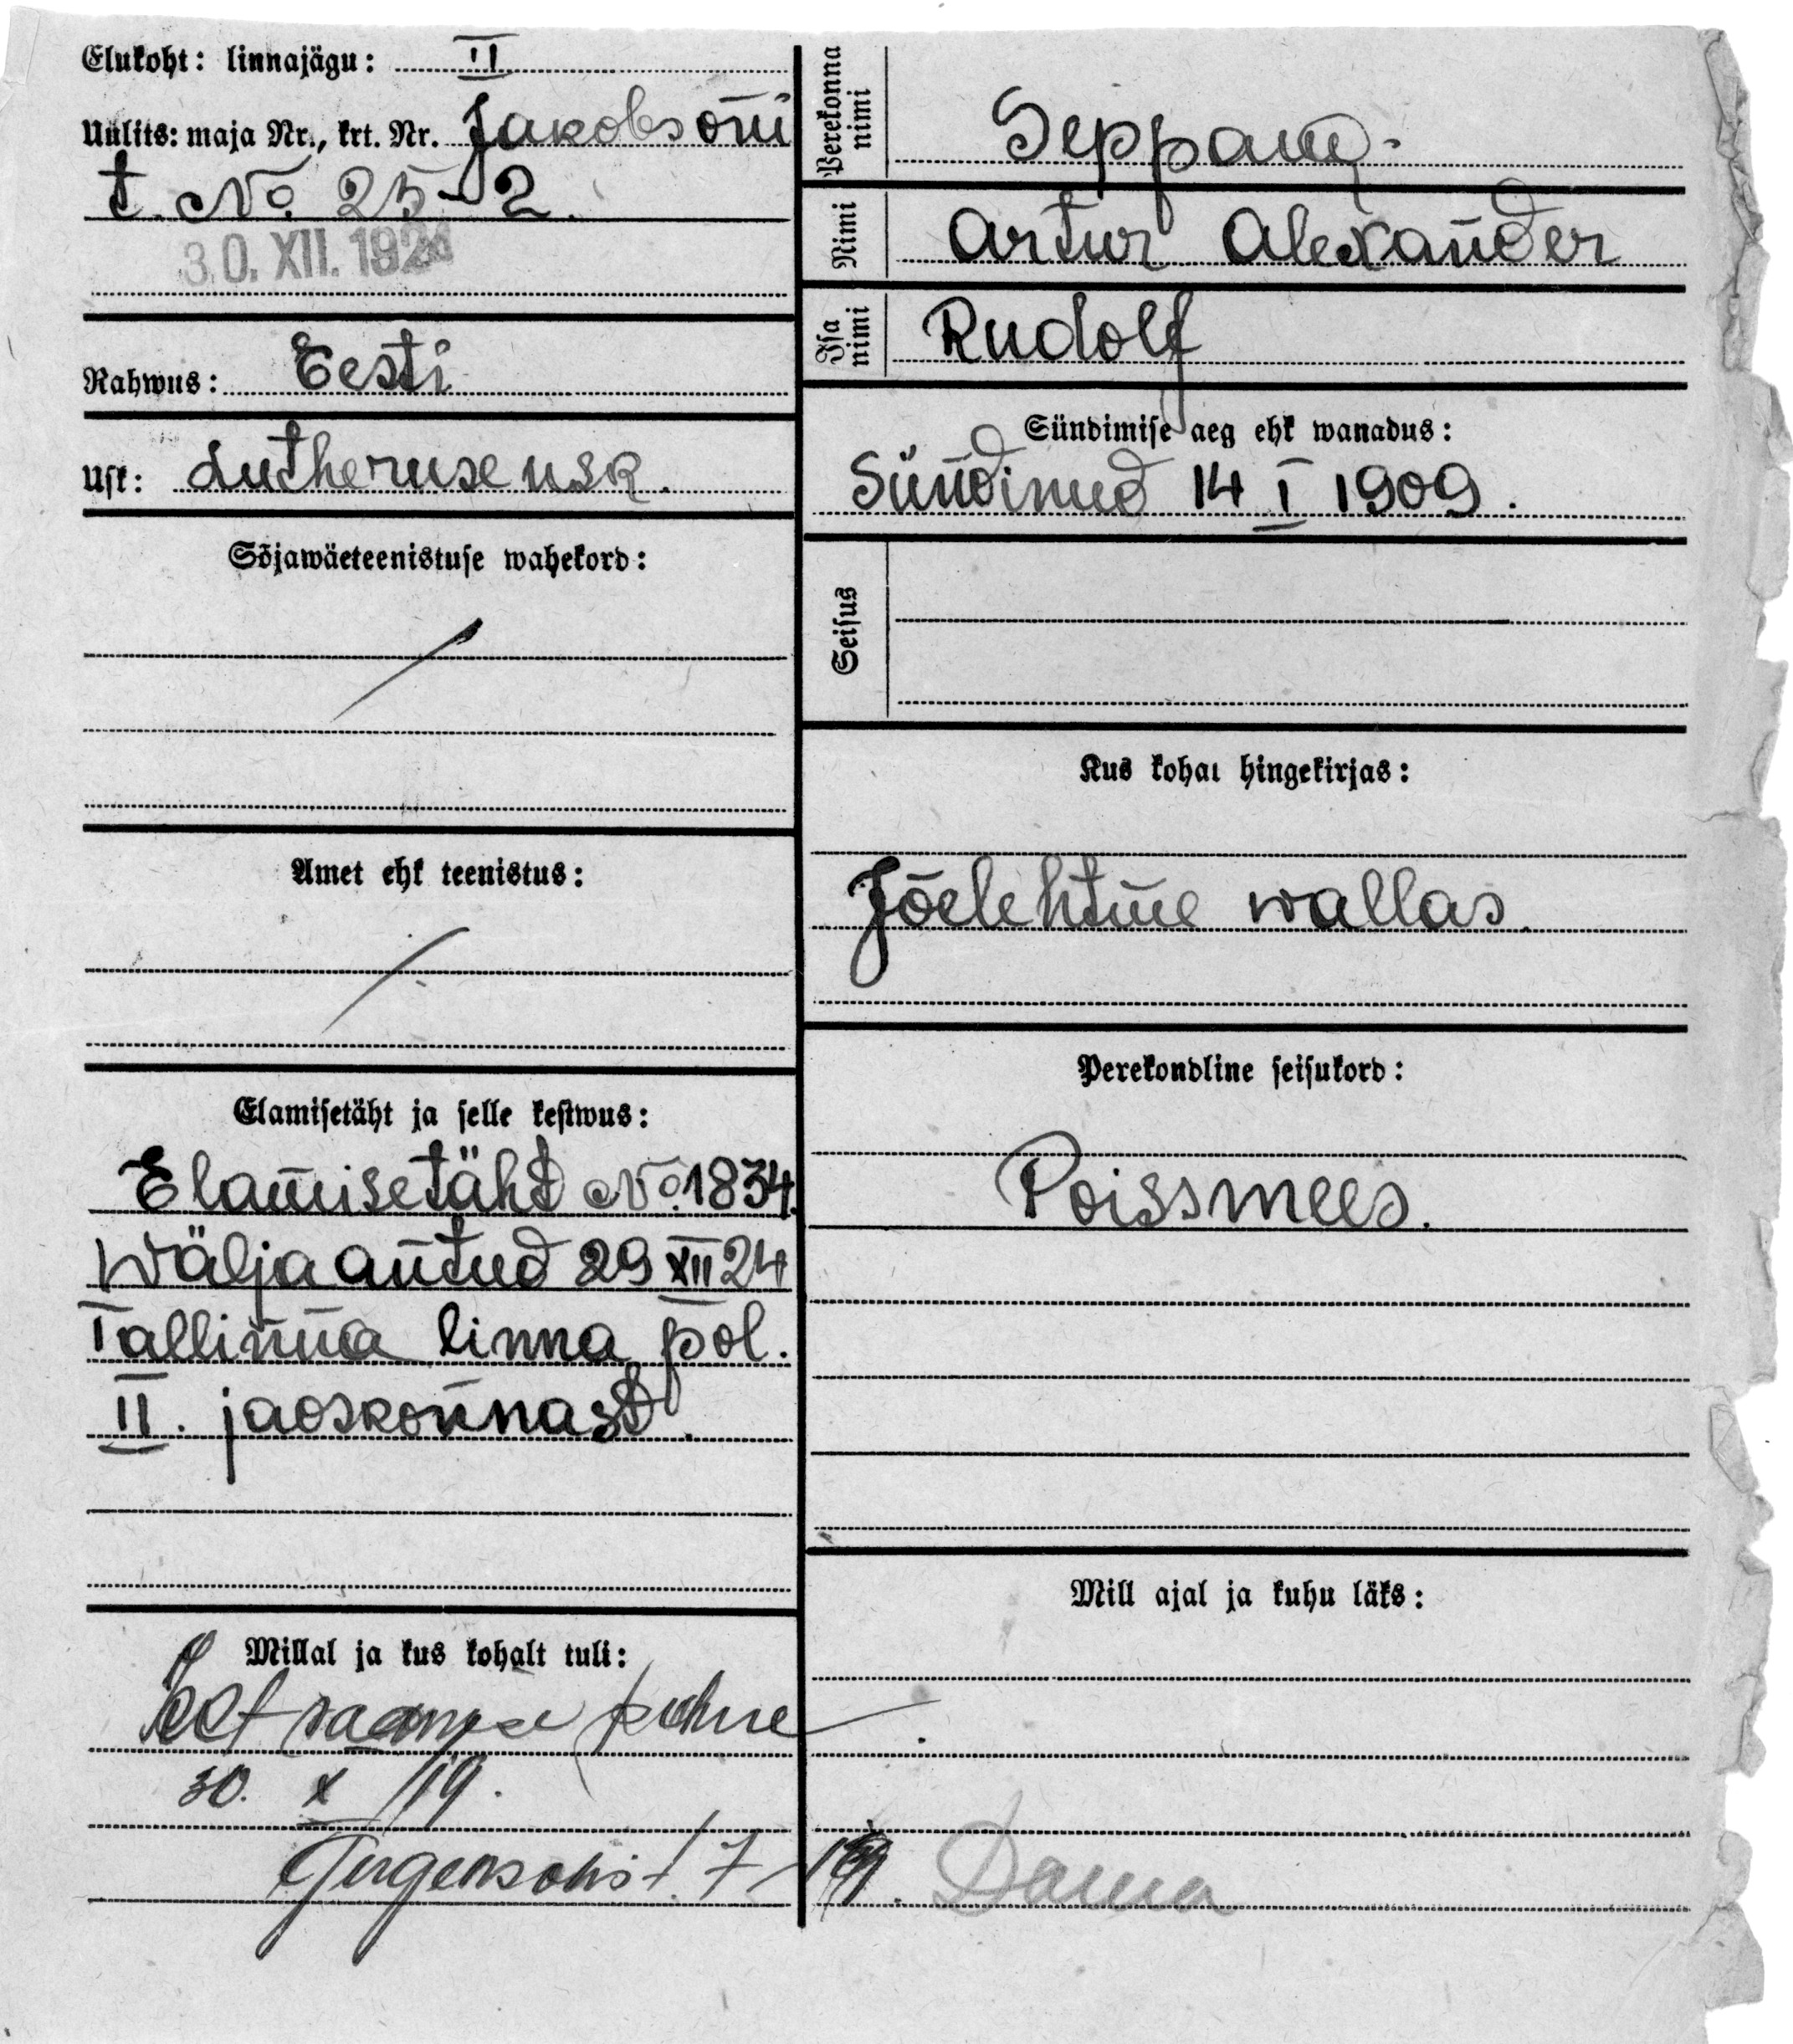 Elukoht: linnajägu: II
Uulits: maja Nr., krt. Nr. Jakobsoni
t. No. 25-2.
30. XII. 1924
Rahwus: Eesti
Usk: Lutheruse usk.
Sõjawäeteenistuse wahekord:
Amet ehk teenistus:
Elamisetäht ja selle kestwus:
Elamisetäht No. 1834.
wälja antud 29 XII 24
Tallinna linna pol.
II. jaoskonnast.
Millal ja kus kohalt tuli:
30. X 19.
t. 7
Perekonna nimi
Nimi Artur Alexander
Isa nimi Rudolf
Sündimise aeg ehk wanadus:
Sündinud 14 I 1909.
Seisus
Kus kohal hingekirjas:
Jõelehtme wallas.
Perekondline seisukord:
Poissmees.
Mill ajal ja kuhu läks: